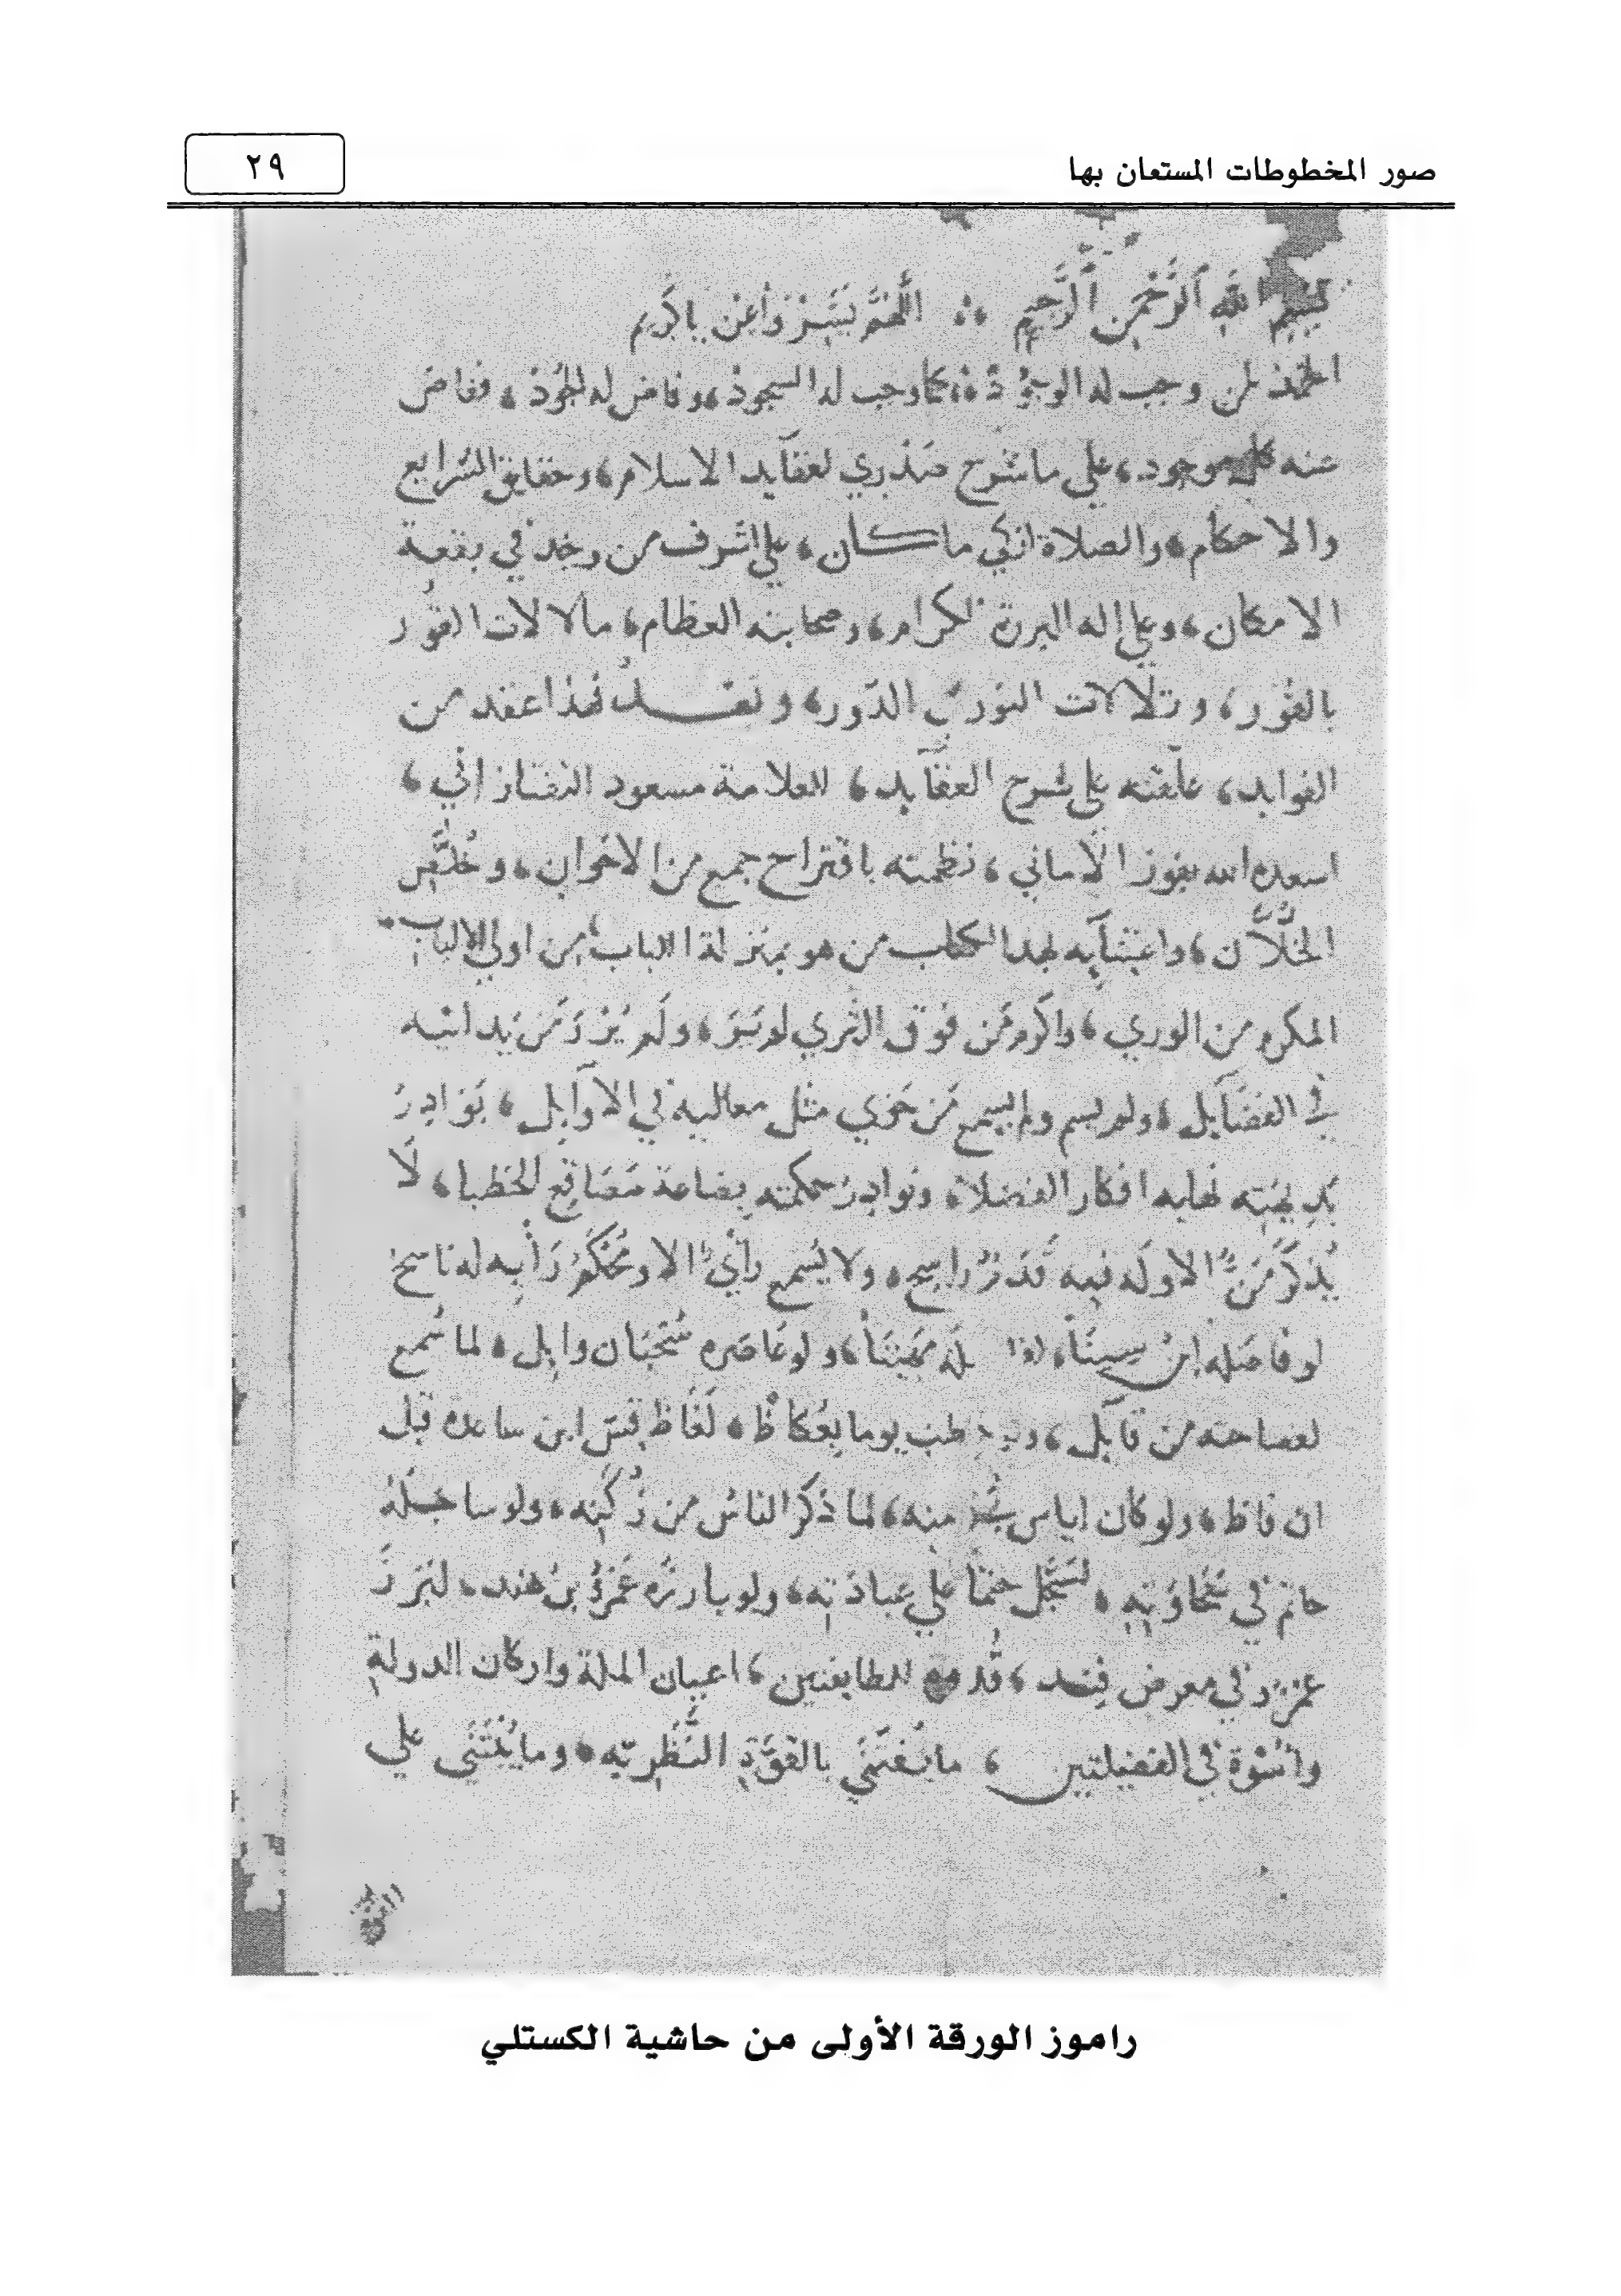 صور المخطوطات المستعان بها
٢٩
بسم الله الرحمن الرحيم اللهم يسر واعن يا كريم
الحمد لمن وجب له الوجود، كما وجب له السجود، وفاض له الجود، وفاض
عنه كل موجود، على ما شرح صدري لعقآيد الاسلام، وحقايق الشرايع
والاحكام، والصلاة ازكي ما كان، على اشرف من وجد في بقعة
الامكان، وعلى اله البررة الكرام، وصحابته العظام، ما لالات الفور
بالقور، وتلالات النور في الدور، وبعد فهذا عقد من
الفوايد، علقته على شرح العقآيد، للعلامة مسعود التفتازاني،
اسعده الله بفوز الاماني، نظمته باقتراح جمع من الاخوان، وخلص
الخلان، واعتنآيه لهذا الكتاب من هو بمنزلة اللباب، من اولي الالباب
المكرم من الوري، واكرم من فوق الثري لم تر، ولم يُزْ من يدانيه
في الفضآيل، ولم يسم ولم يسمع من حوي مثل معاليه في الاوآيل، بوادر
بديهته نهاية افكار الفضلا، ونوادر حكمته بضاعة مصاقع الخطبا، لا
يذكر من الا وله فيه قدم راسخ، ولا يسمع رأي الا ومحكم رأيه له ناسخ
لو فاضله ابن سينا، له مهينا، ولو عاصره سحبان وايل، لما سمع
لفصاحته من قآيل، ولو خطب يوما بعكاظ، لغاظ قس ابن ساعده قبل
ان فاظ، ولو كان اياس في منه، لما ذكر الناس من زكنه، ولو ساجله
حاتم في سخاوته، لسجل حتما على عباد ته، ولو بارزه عمرو بن هند، لبرز
في معرض فند، قد مع المطايفتين، اعيان الملة واركان الدولة
واسوة في الفضيلتين، ما يغتني بالقوة النظرية، وما يبتني على
راموز الورقة الأولى من حاشية الكستلي